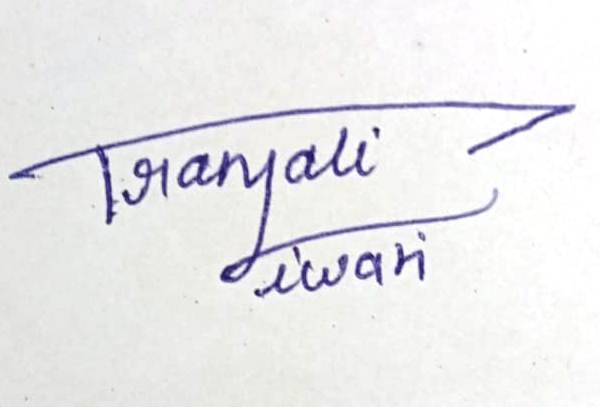 Pranjali
Tiwari